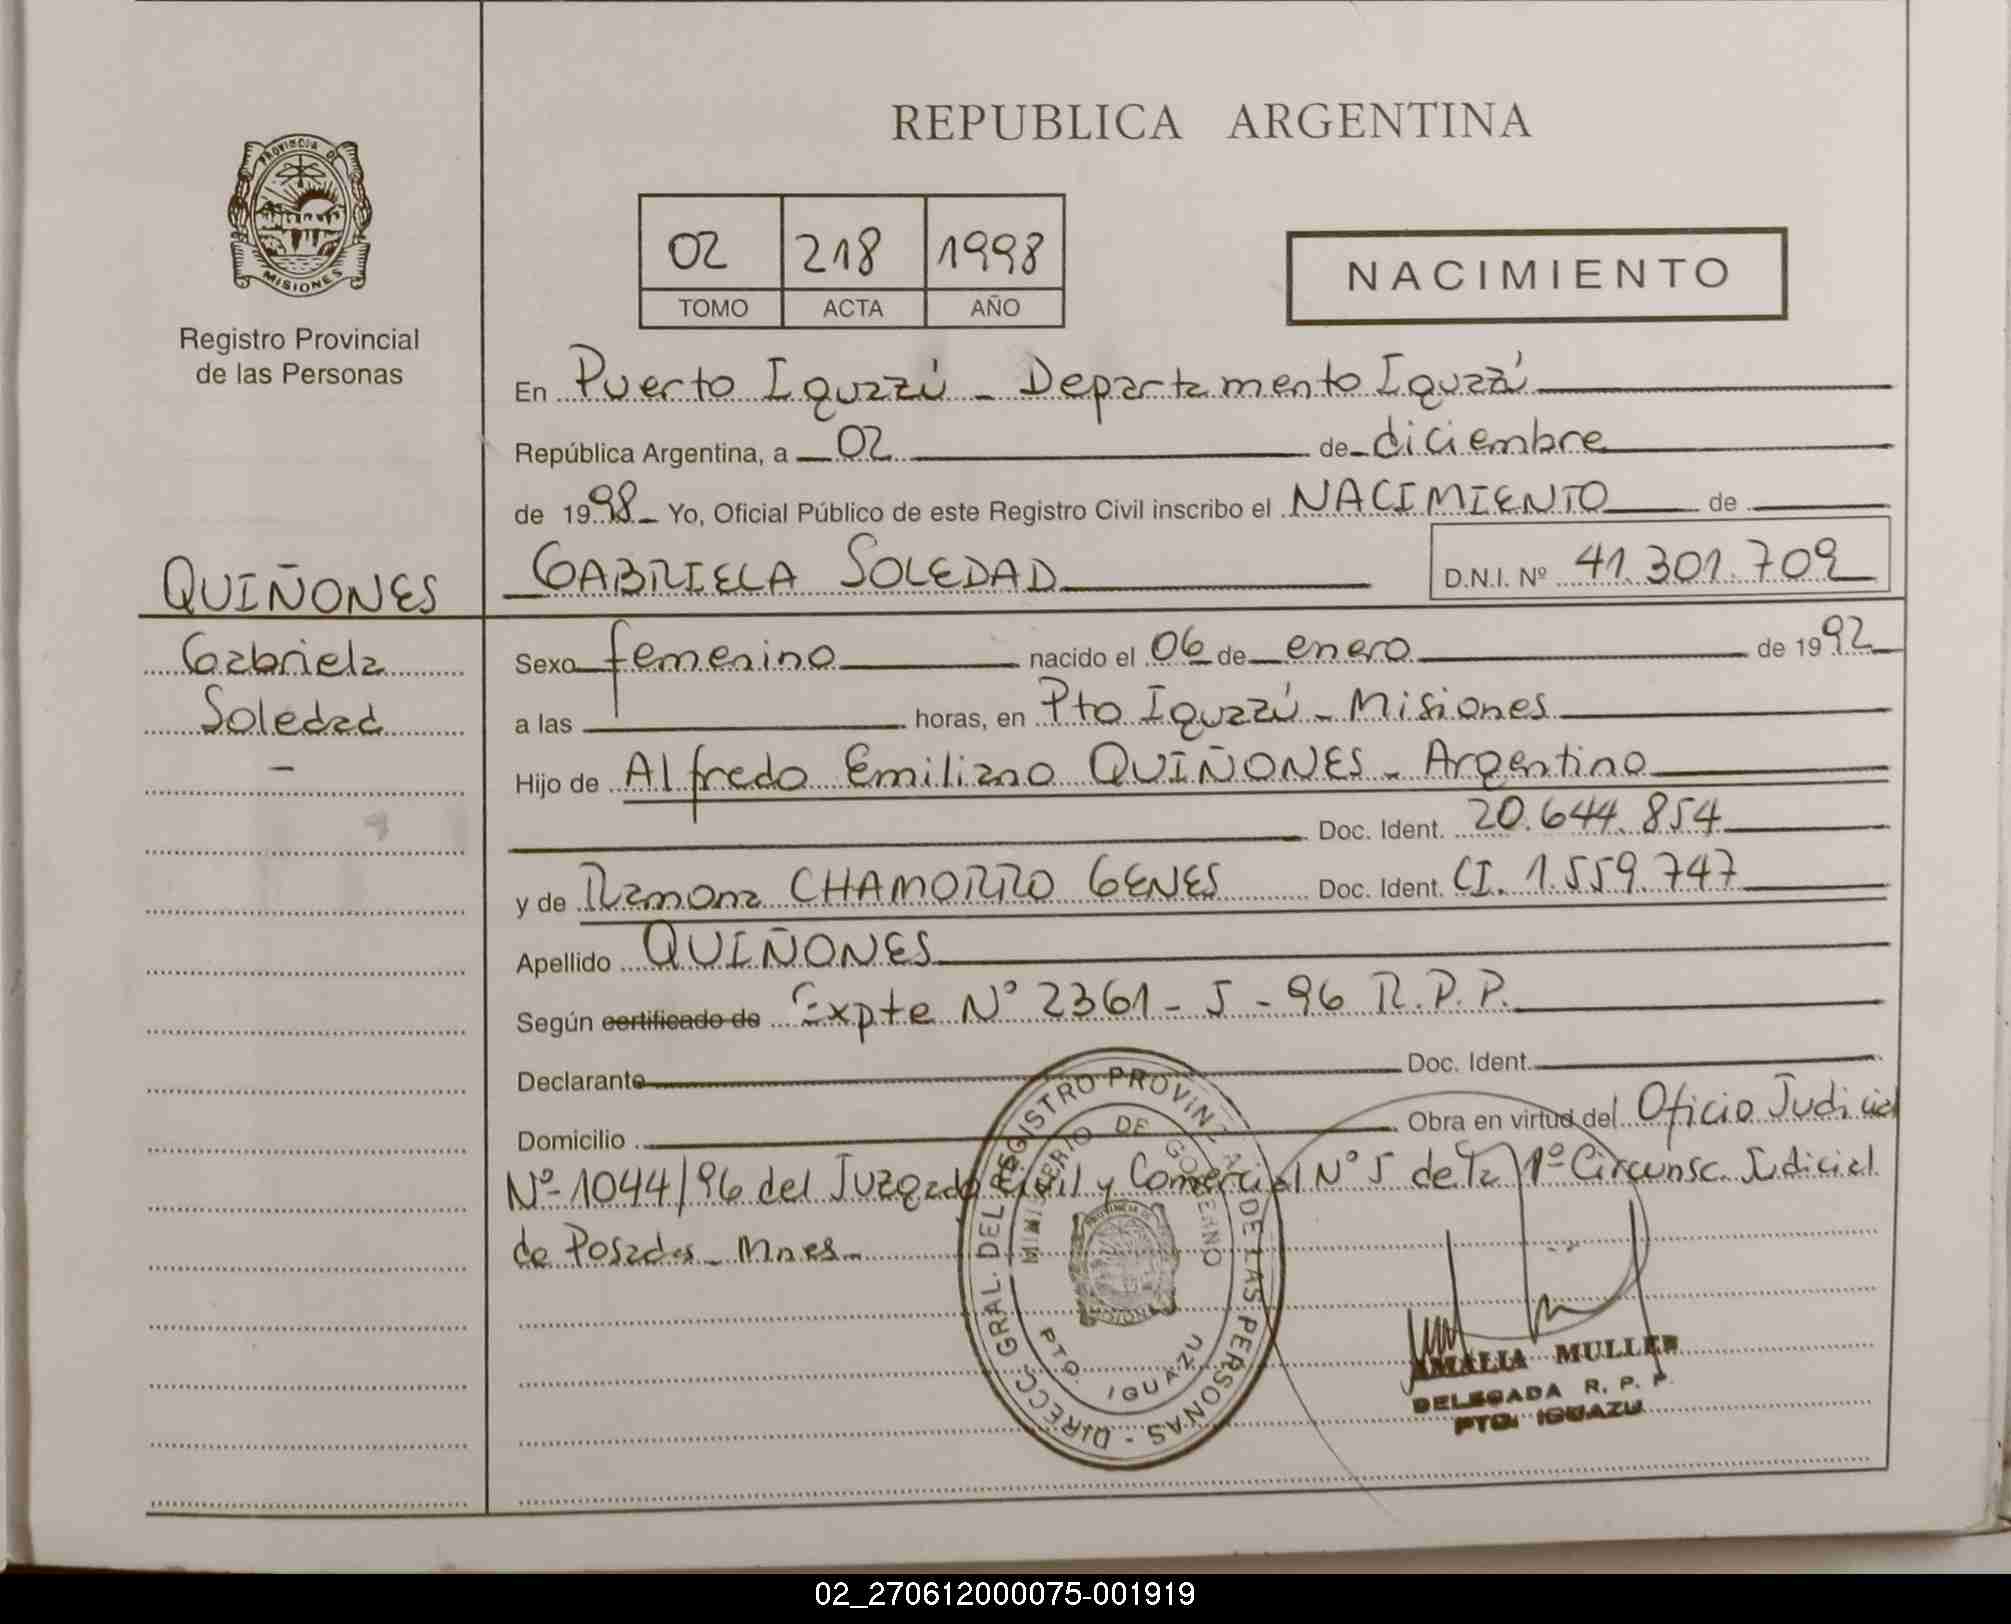 REPUBLICA ARGENTINA
PROVINCIA DE
MISIONES
Registro Provincial
de las Personas
02 218 1998
TOMO ACTA AÑO
NACIMIENTO
En Puerto Iguazú - Departamento Iguazú
República Argentina, a 02 de diciembre
de 1998 Yo, Oficial Público de este Registro Civil inscribo el NACIMIENTO de
QUIÑONES
GABRIELA SOLEDAD D.N.I. Nº 41.301.709
Gabriela
Soledad
-
Sexo femenino nacido el 06 de enero de 1992
a las horas, en Pto Iguazú - Misiones
Hijo de Alfredo Emiliano QUIÑONES - Argentino
Doc. Ident. 20.644.854
y de Ramona CHAMORRO GENES Doc. Ident. CI. 1.559.747
Apellido QUIÑONES
Según certificado de Expte Nº 2361 - J - 96 R.P.P.
Declarante Doc. Ident.
Domicilio Obra en virtud del Oficio Judicial
Nº 1044/96 del Juzgado Civil y Comercial Nº 5 de la 1º Circunsc. Judicial
de Posadas - Mnes -
DIRECC. GRAL. DEL REGISTRO PROVINC. DE LAS PERSONAS -
MINISTERIO DE GOBIERNO
PTO. IGUAZU
AMALIA MULLER
DELEGADA R. P. P.
PTO. IGUAZU
02_270612000075-001919